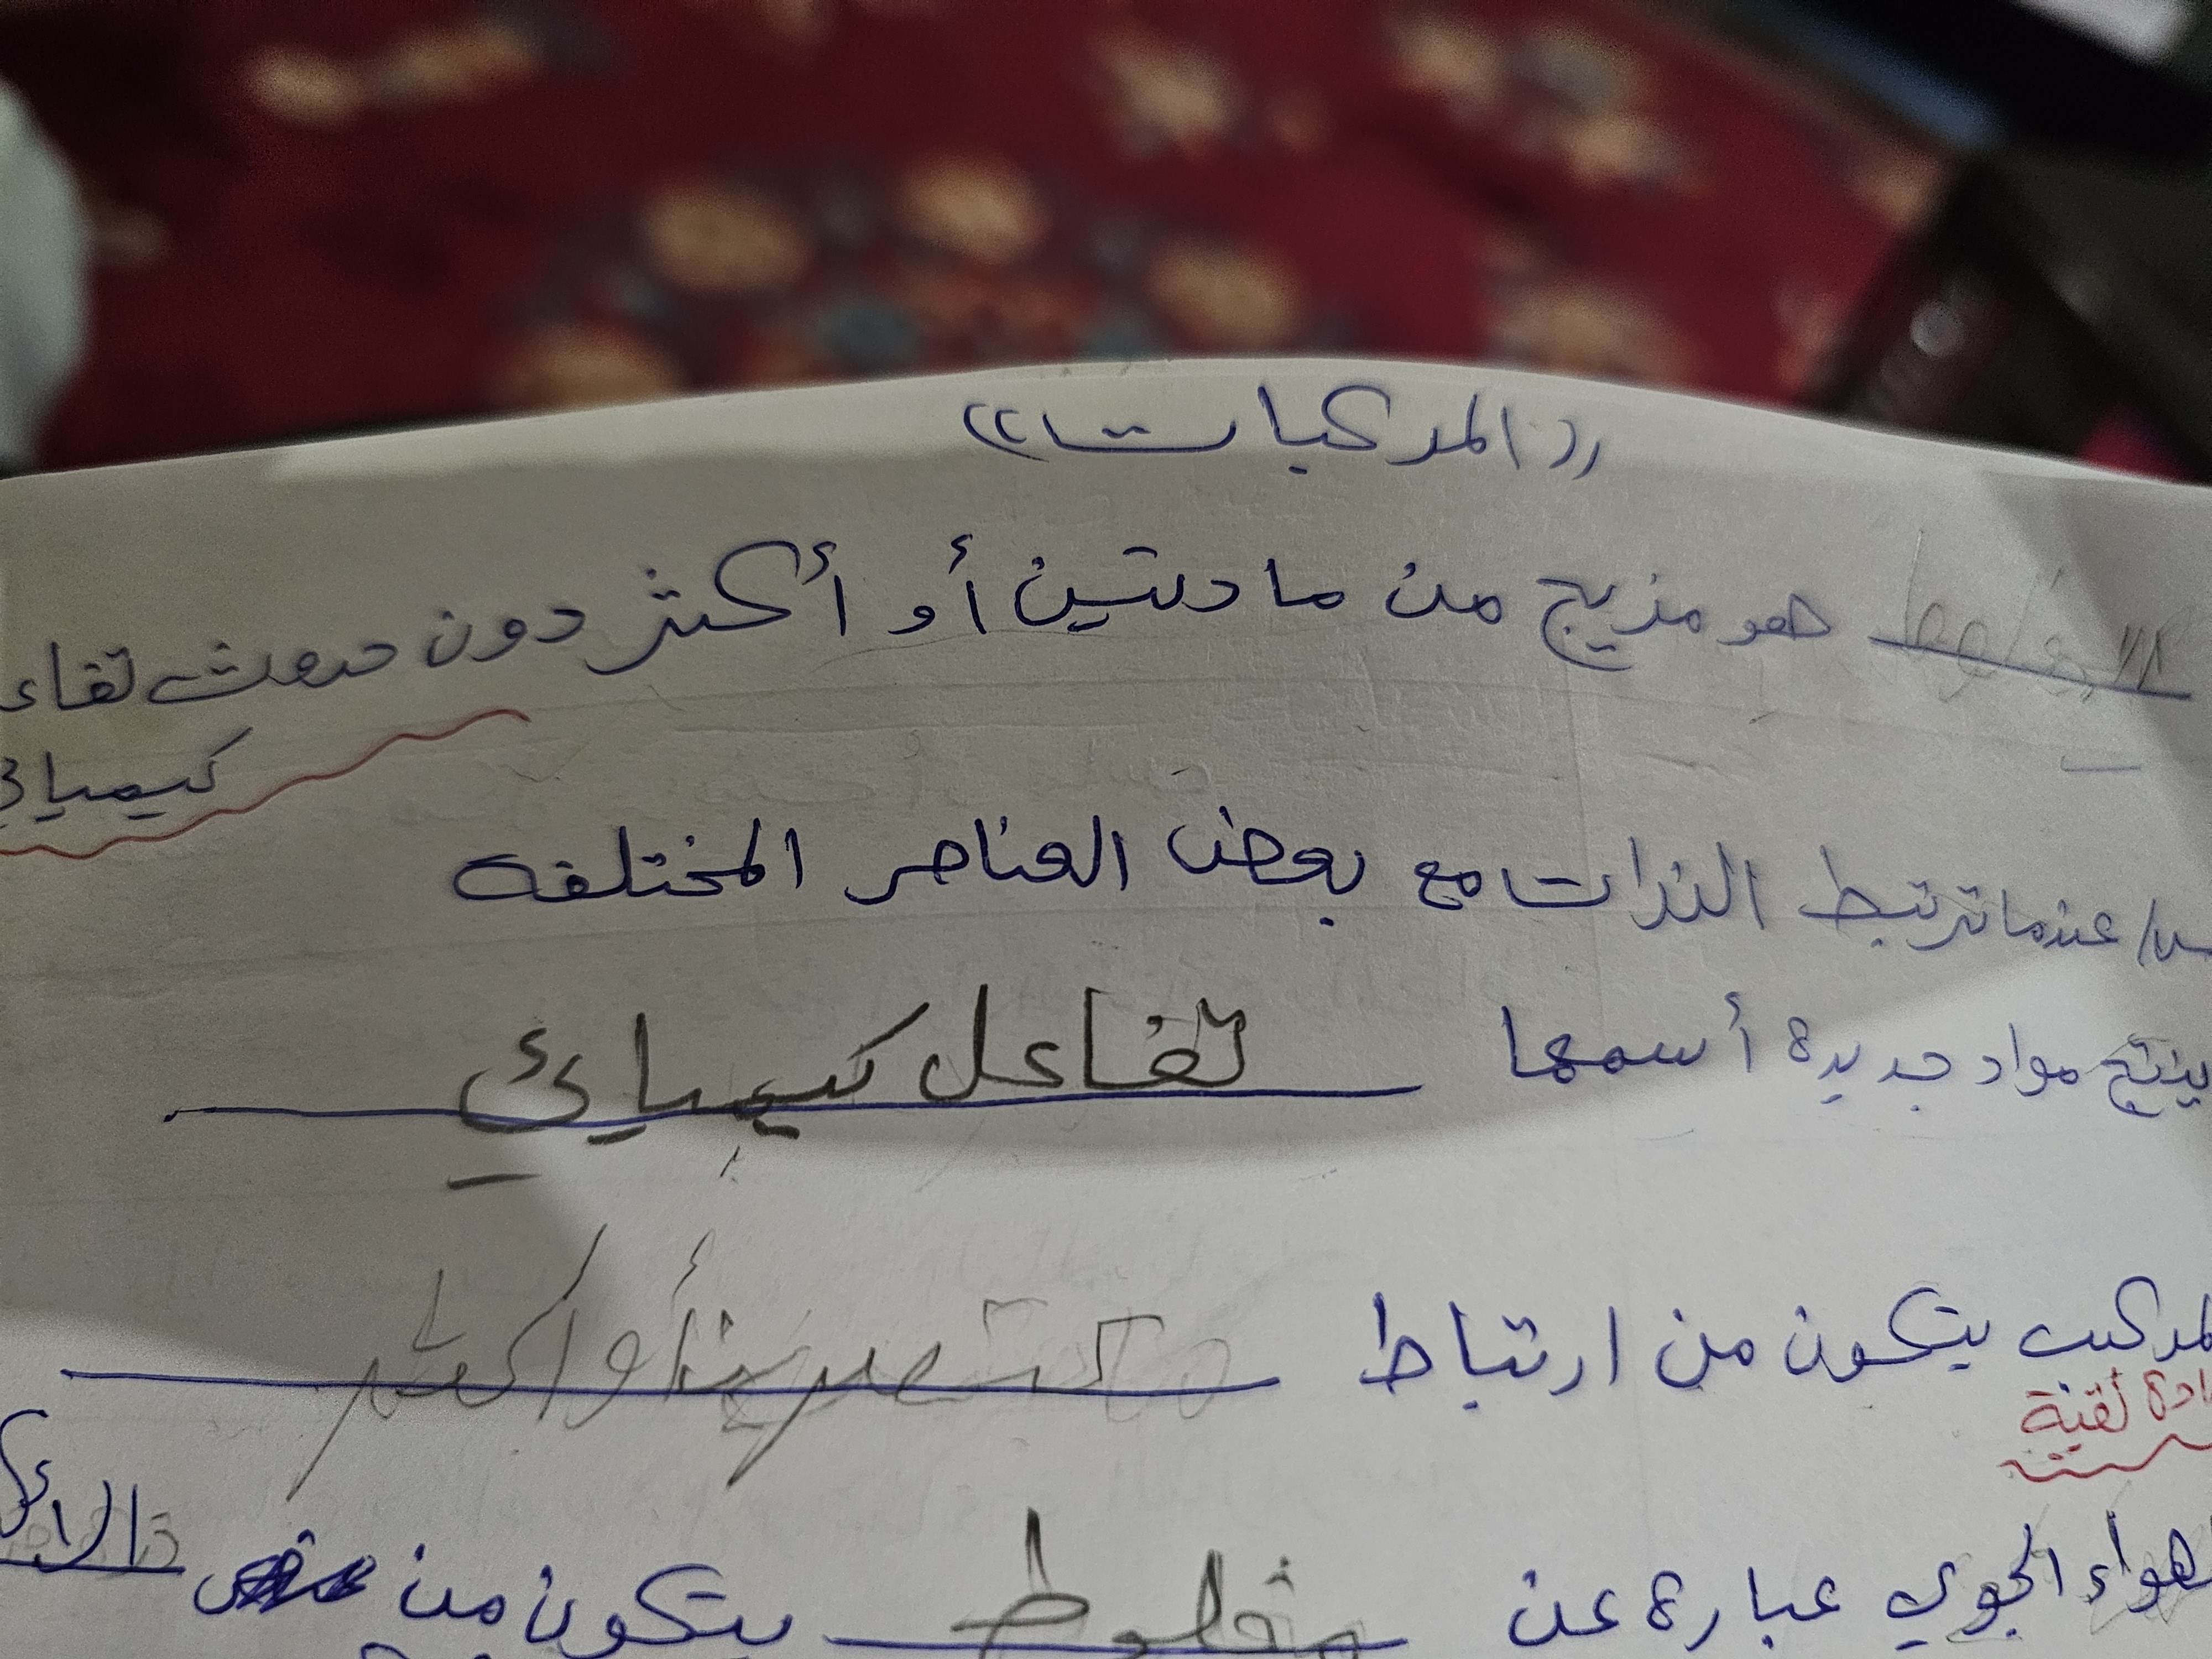 ((المركبات))
المخلوط هو مزيج من مادتين أو أكثر دون حدوث تفاع
كيميائي
س/ عندما ترتبط الذرات مع بعض العناصر المختلفه
ينتج مواد جديدة أسمها تفاعل كيميائي
لمركب يتكون من ارتباط عنصرين أو أكثر
ادة نقية
لهواء الجوي عبارة عن مخلوط يتكون من